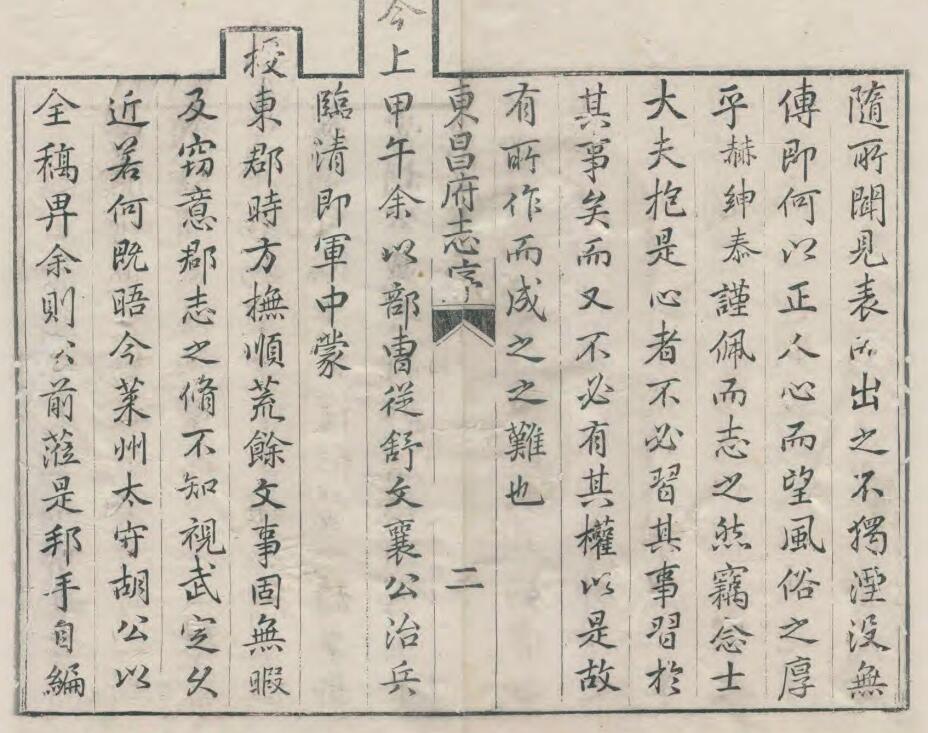 隨所聞見表而出之不獨湮沒無
傳即何以正人心而望風俗之厚
乎赫紳恭謹佩而志之然竊念士
大夫抱是心者不必習其事習於
其事矣而又不必有其權以是故
有所作而成之之難也
東昌府志序 二
今上甲午余以部曹從舒文襄公治兵
臨清即軍中蒙
授東郡時方撫順荒餘文事固無暇
及窃意郡志之脩不知視武定久
近若何既晤今萊州太守胡公以
全稿畀余則公前蒞是邦手自編